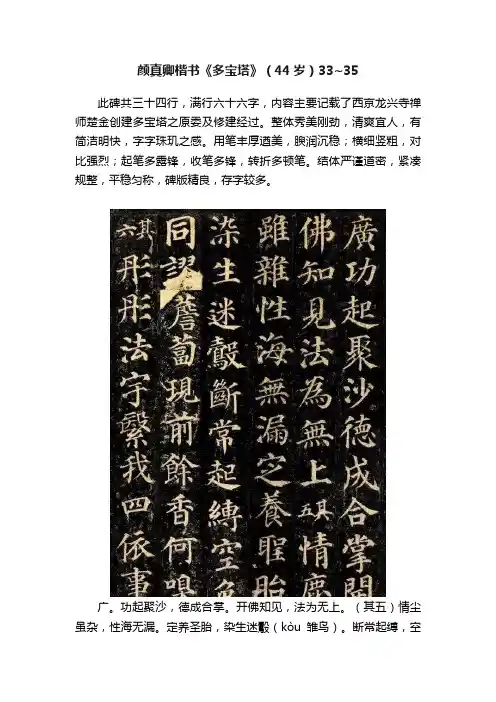 颜真卿楷书《多宝塔》（44 岁）33~35
此碑共三十四行，满行六十六字，内容主要记载了西京龙兴寺禅
师楚金创建多宝塔之原委及修建经过。整体秀美刚劲，清爽宜人，有
简洁明快，字字珠玑之感。用笔丰厚遒美，腴润沉稳；横细竖粗，对
比强烈；起笔多露锋，收笔多锋，转折多顿笔。结体严谨遒密，紧凑
规整，平稳匀称，碑版精良，存字较多。
廣功起聚沙德成合掌開
佛知見法為無上其五情塵
雖雜性海無漏定養聖胎
染生迷鷇斷常起縛空色
同謬薝蔔現前餘香何嗅
其六彤彤法宇繄我四依事
广。功起聚沙，德成合掌。开佛知见，法为无上。（其五）情尘
虽杂，性海无漏。定养圣胎，染生迷鷇（kòu 雏鸟）。断常起缚，空